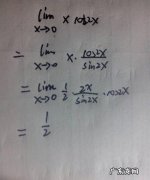 lim x→0 x cot2x
= lim x→0 x · cos2x/sin2x
= lim x→0 1/2 · 2x/sin2x · cos2x
= 1/2